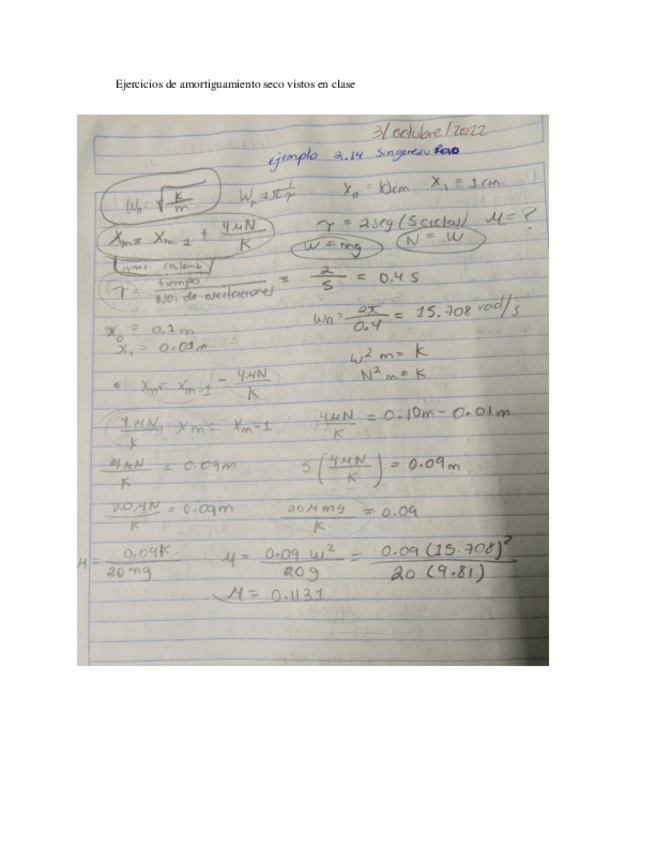 Ejercicios de amortiguamiento seco vistos en clase
3/octubre/2022
ejemplo 2.14 Singeresu Rao
Wn = √(K/m)   Wn = 2π 1/τ   X₀ = 10cm   X₁ = 1cm
τ = 2seg (5 ciclos)   μ = ?
Xm = Xm-1 + 4μN/K   W = mg   N = W
τ = tiempo / No. de oscilaciones = 2/5 = 0.4 s
X₀ = 0.1 m   Wn = 2π/0.4 = 15.708 rad/s
X₁ = 0.01m
w² m = K
• Xm = Xm-1 - 4μN/K   N² m = K
4μN/K Xm = Xm-1   4μN/K = 0.10m - 0.01m
4μN/K = 0.09m   5(4μN/K) = 0.09m
20μN/K = 0.09m   20μmg/K = 0.09
μ = 0.09K/20mg   μ = 0.09 w²/20g = 0.09 (15.708)²/20 (9.81)
μ = 0.1131